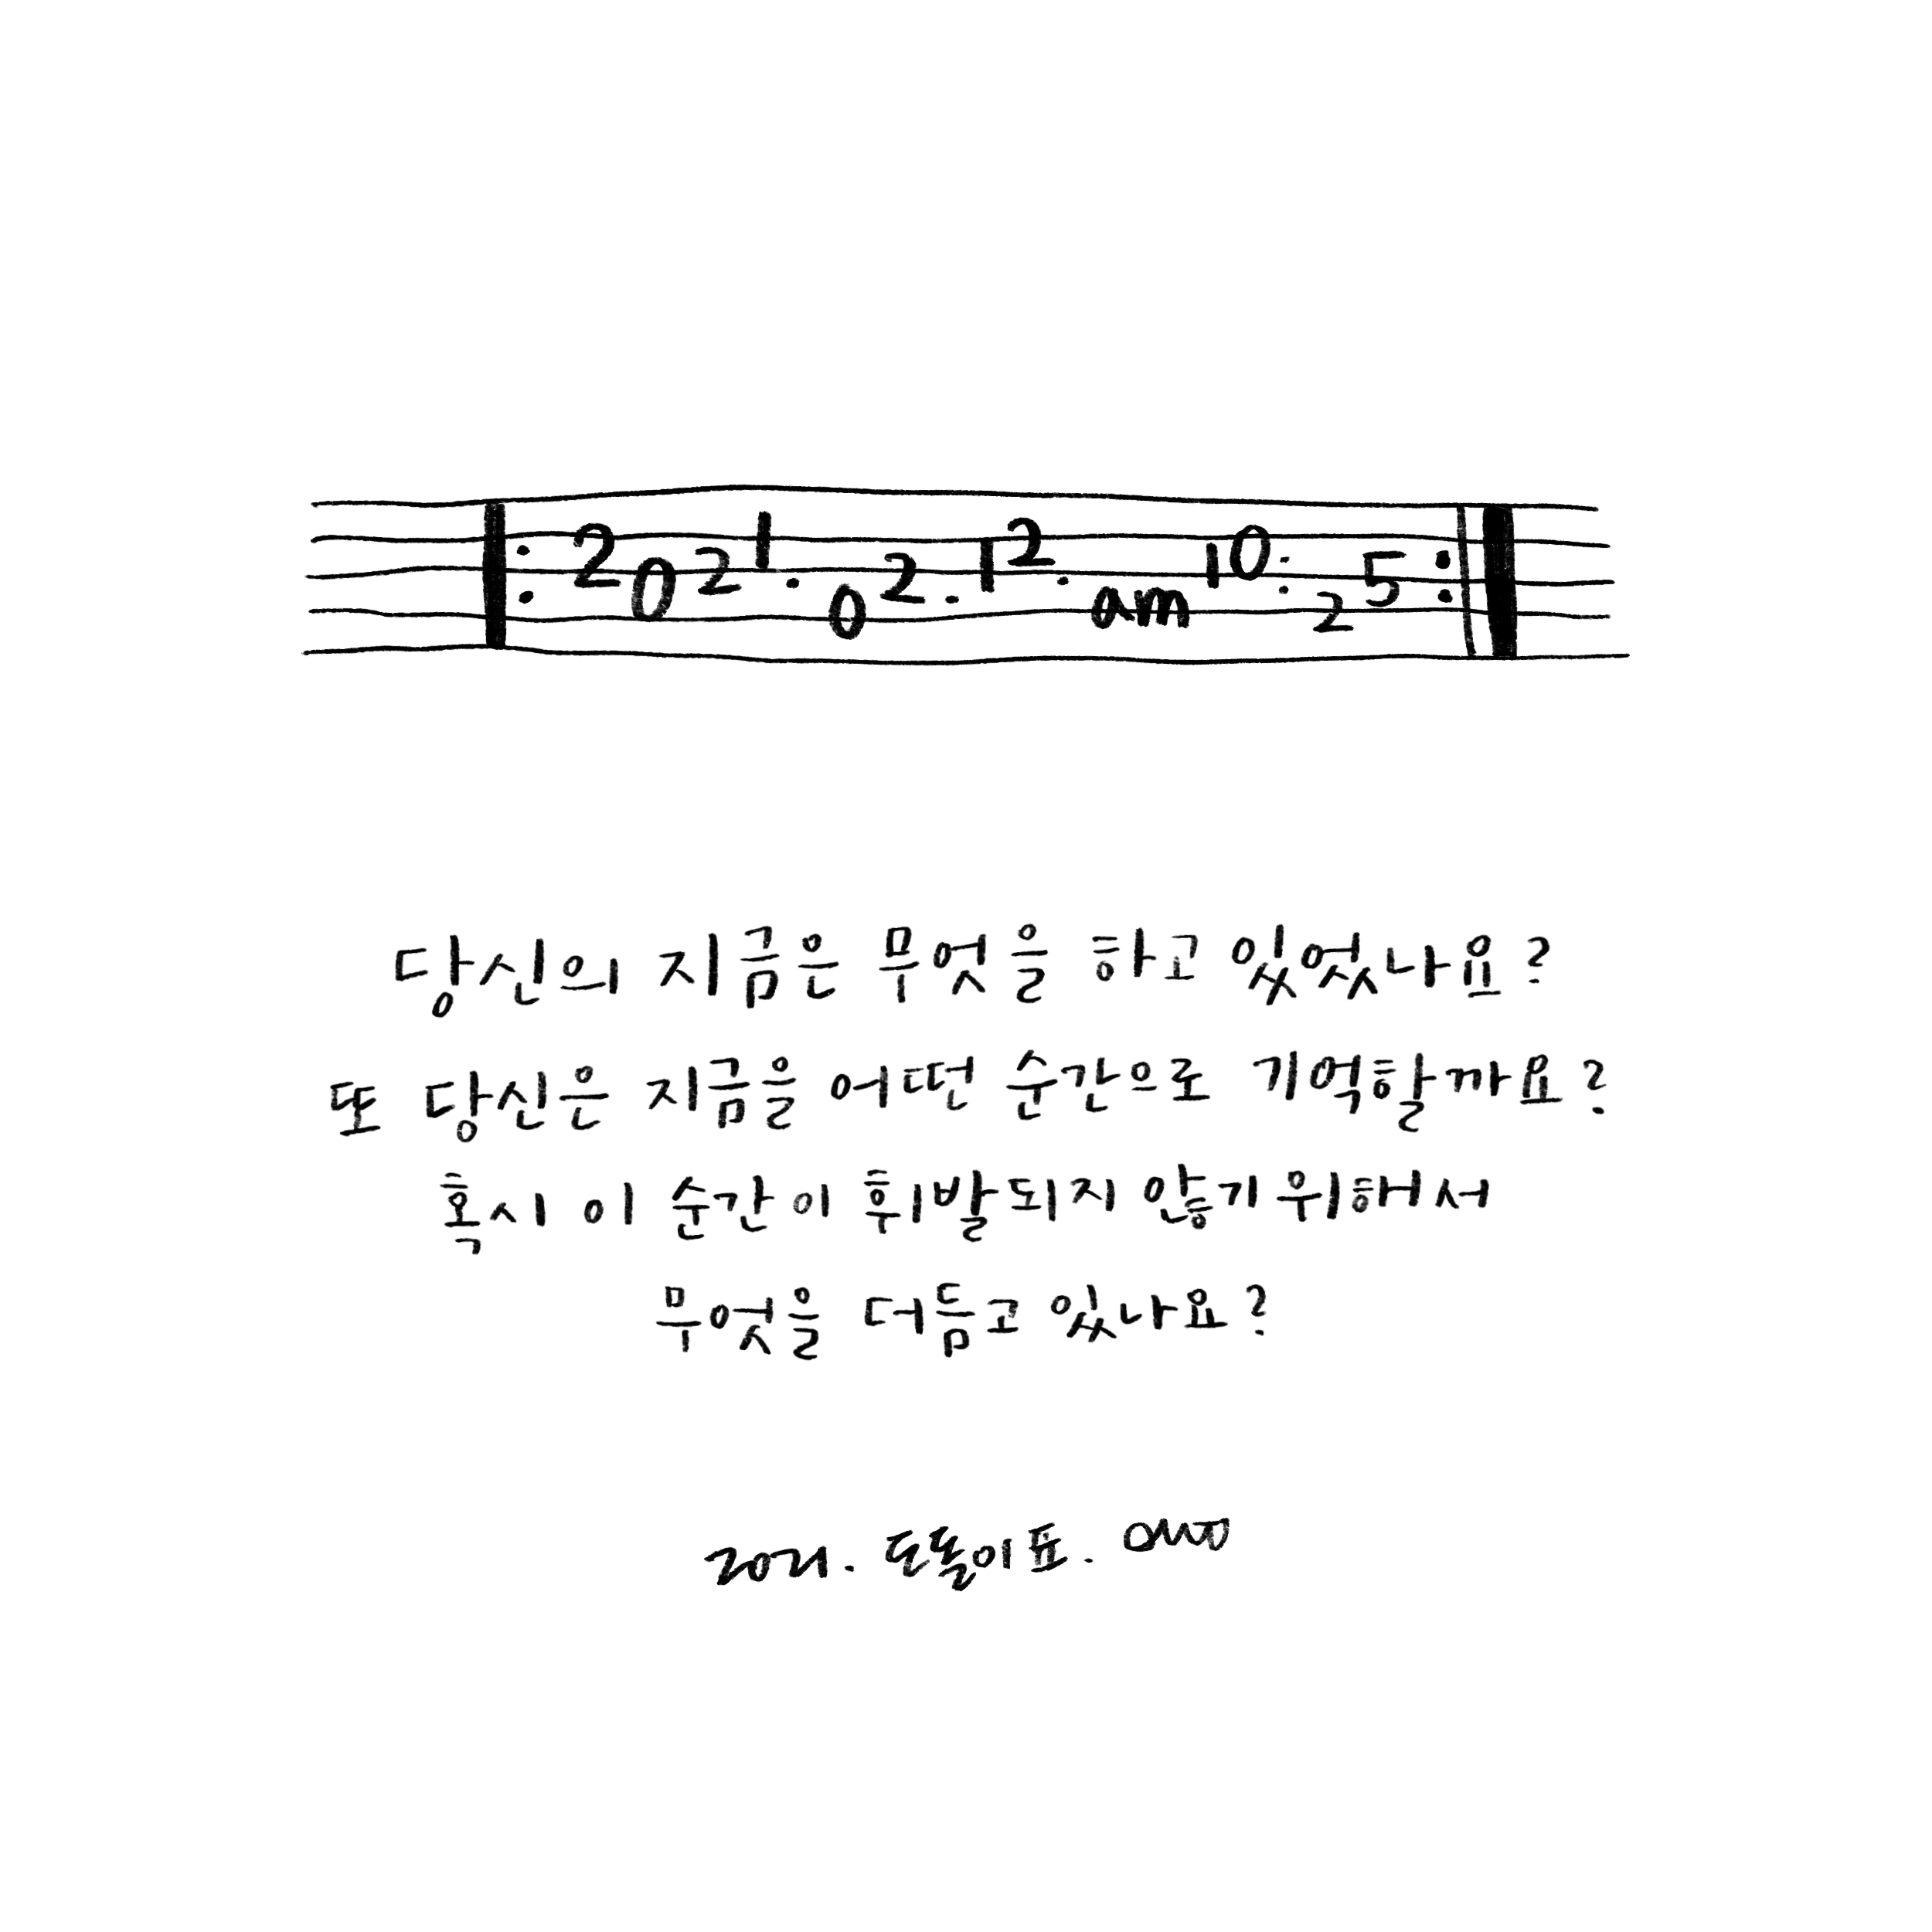 2021.02.12. am 10:25
당신의 지금은 무엇을 하고 있었나요?
또 당신은 지금을 어떤 순간으로 기억할까요?
혹시 이 순간이 휘발되지 않기 위해서
무엇을 더듬고 있나요?
2021. 도돌이표.